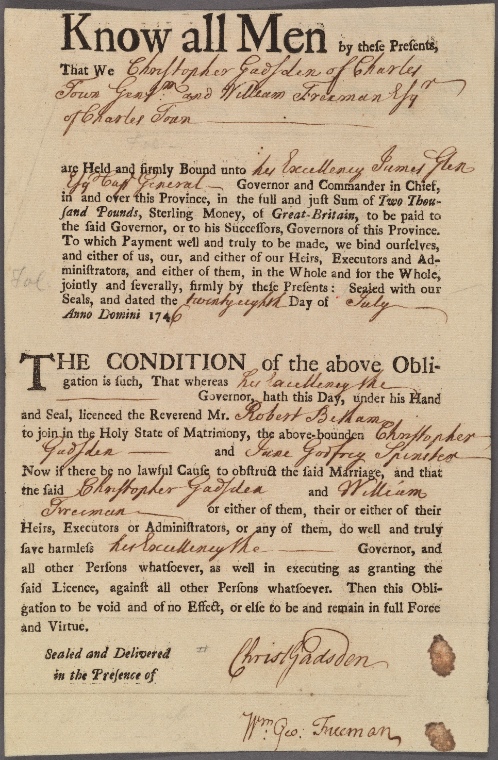 Know all Men by these Presents,
That We Christopher Gadsden of Charles
Town Gentm. and William Freeman Esqr
of Charles Town
are Held and firmly Bound unto his Excellency James Glen
Esqr Capt General Governor and Commander in Chief,
in and over this Province, in the full and just Sum of Two Thou-
sand Pounds, Sterling Money, of Great-Britain, to be paid to
the said Governor, or to his Successors, Governors of this Province.
To which Payment well and truly to be made, we bind ourselves,
and either of us, our, and either of our Heirs, Executors and Ad-
ministrators, and either of them, in the Whole and for the Whole,
jointly and severally, firmly by these Presents: Sealed with our
Seals, and dated the twenty eighth Day of July
Anno Domini 1746
THE CONDITION of the above Obli-
gation is such, That whereas his Excellency the
Governor, hath this Day, under his Hand
and Seal, licenced the Reverend Mr. Robert Betham
to join in the Holy State of Matrimony, the above-bounden Christopher
Gadsden and Jane Godfrey Spinster
Now if there be no lawful Cause to obstruct the said Marriage, and that
the said Christopher Gadsden and William
Freeman or either of them, their or either of their
Heirs, Executors or Administrators, or any of them, do well and truly
save harmless his Excellency the Governor, and
all other Persons whatsoever, as well in executing as granting the
said Licence, against all other Persons whatsoever. Then this Obli-
gation to be void and of no Effect, or else to be and remain in full Force
and Virtue.
Sealed and Delivered
in the Presence of
Christ Gadsden
Wm. Geo. Freeman